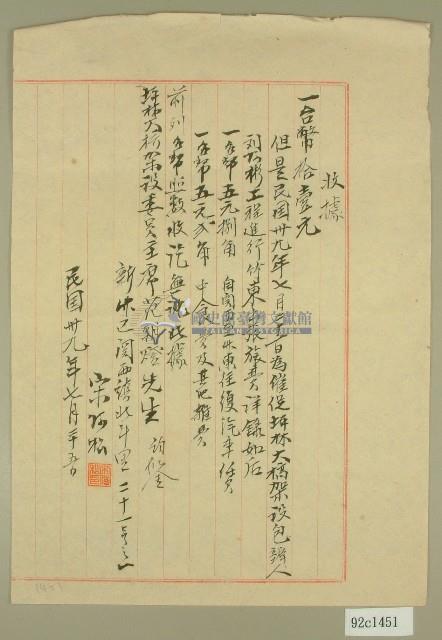 收據
一台幣拾壹元
但是民国卅九年七月 日為催促坪林大橋架設包辦人
刘 彬工程進行竹東出張旅費詳錄如后
一台幣五元捌角 自関西至竹東往復汽車賃
一台幣五元弍角 中食費及其他雜費
前列台幣照数收訖無訛此據
坪林大桥架設委員主席范 燈先生 鈞鑒
新竹 関西鎮北斗里二十一号之一
宋阿
民国卅九年七月二十五日
國史館臺灣文獻館
1451
92c1451